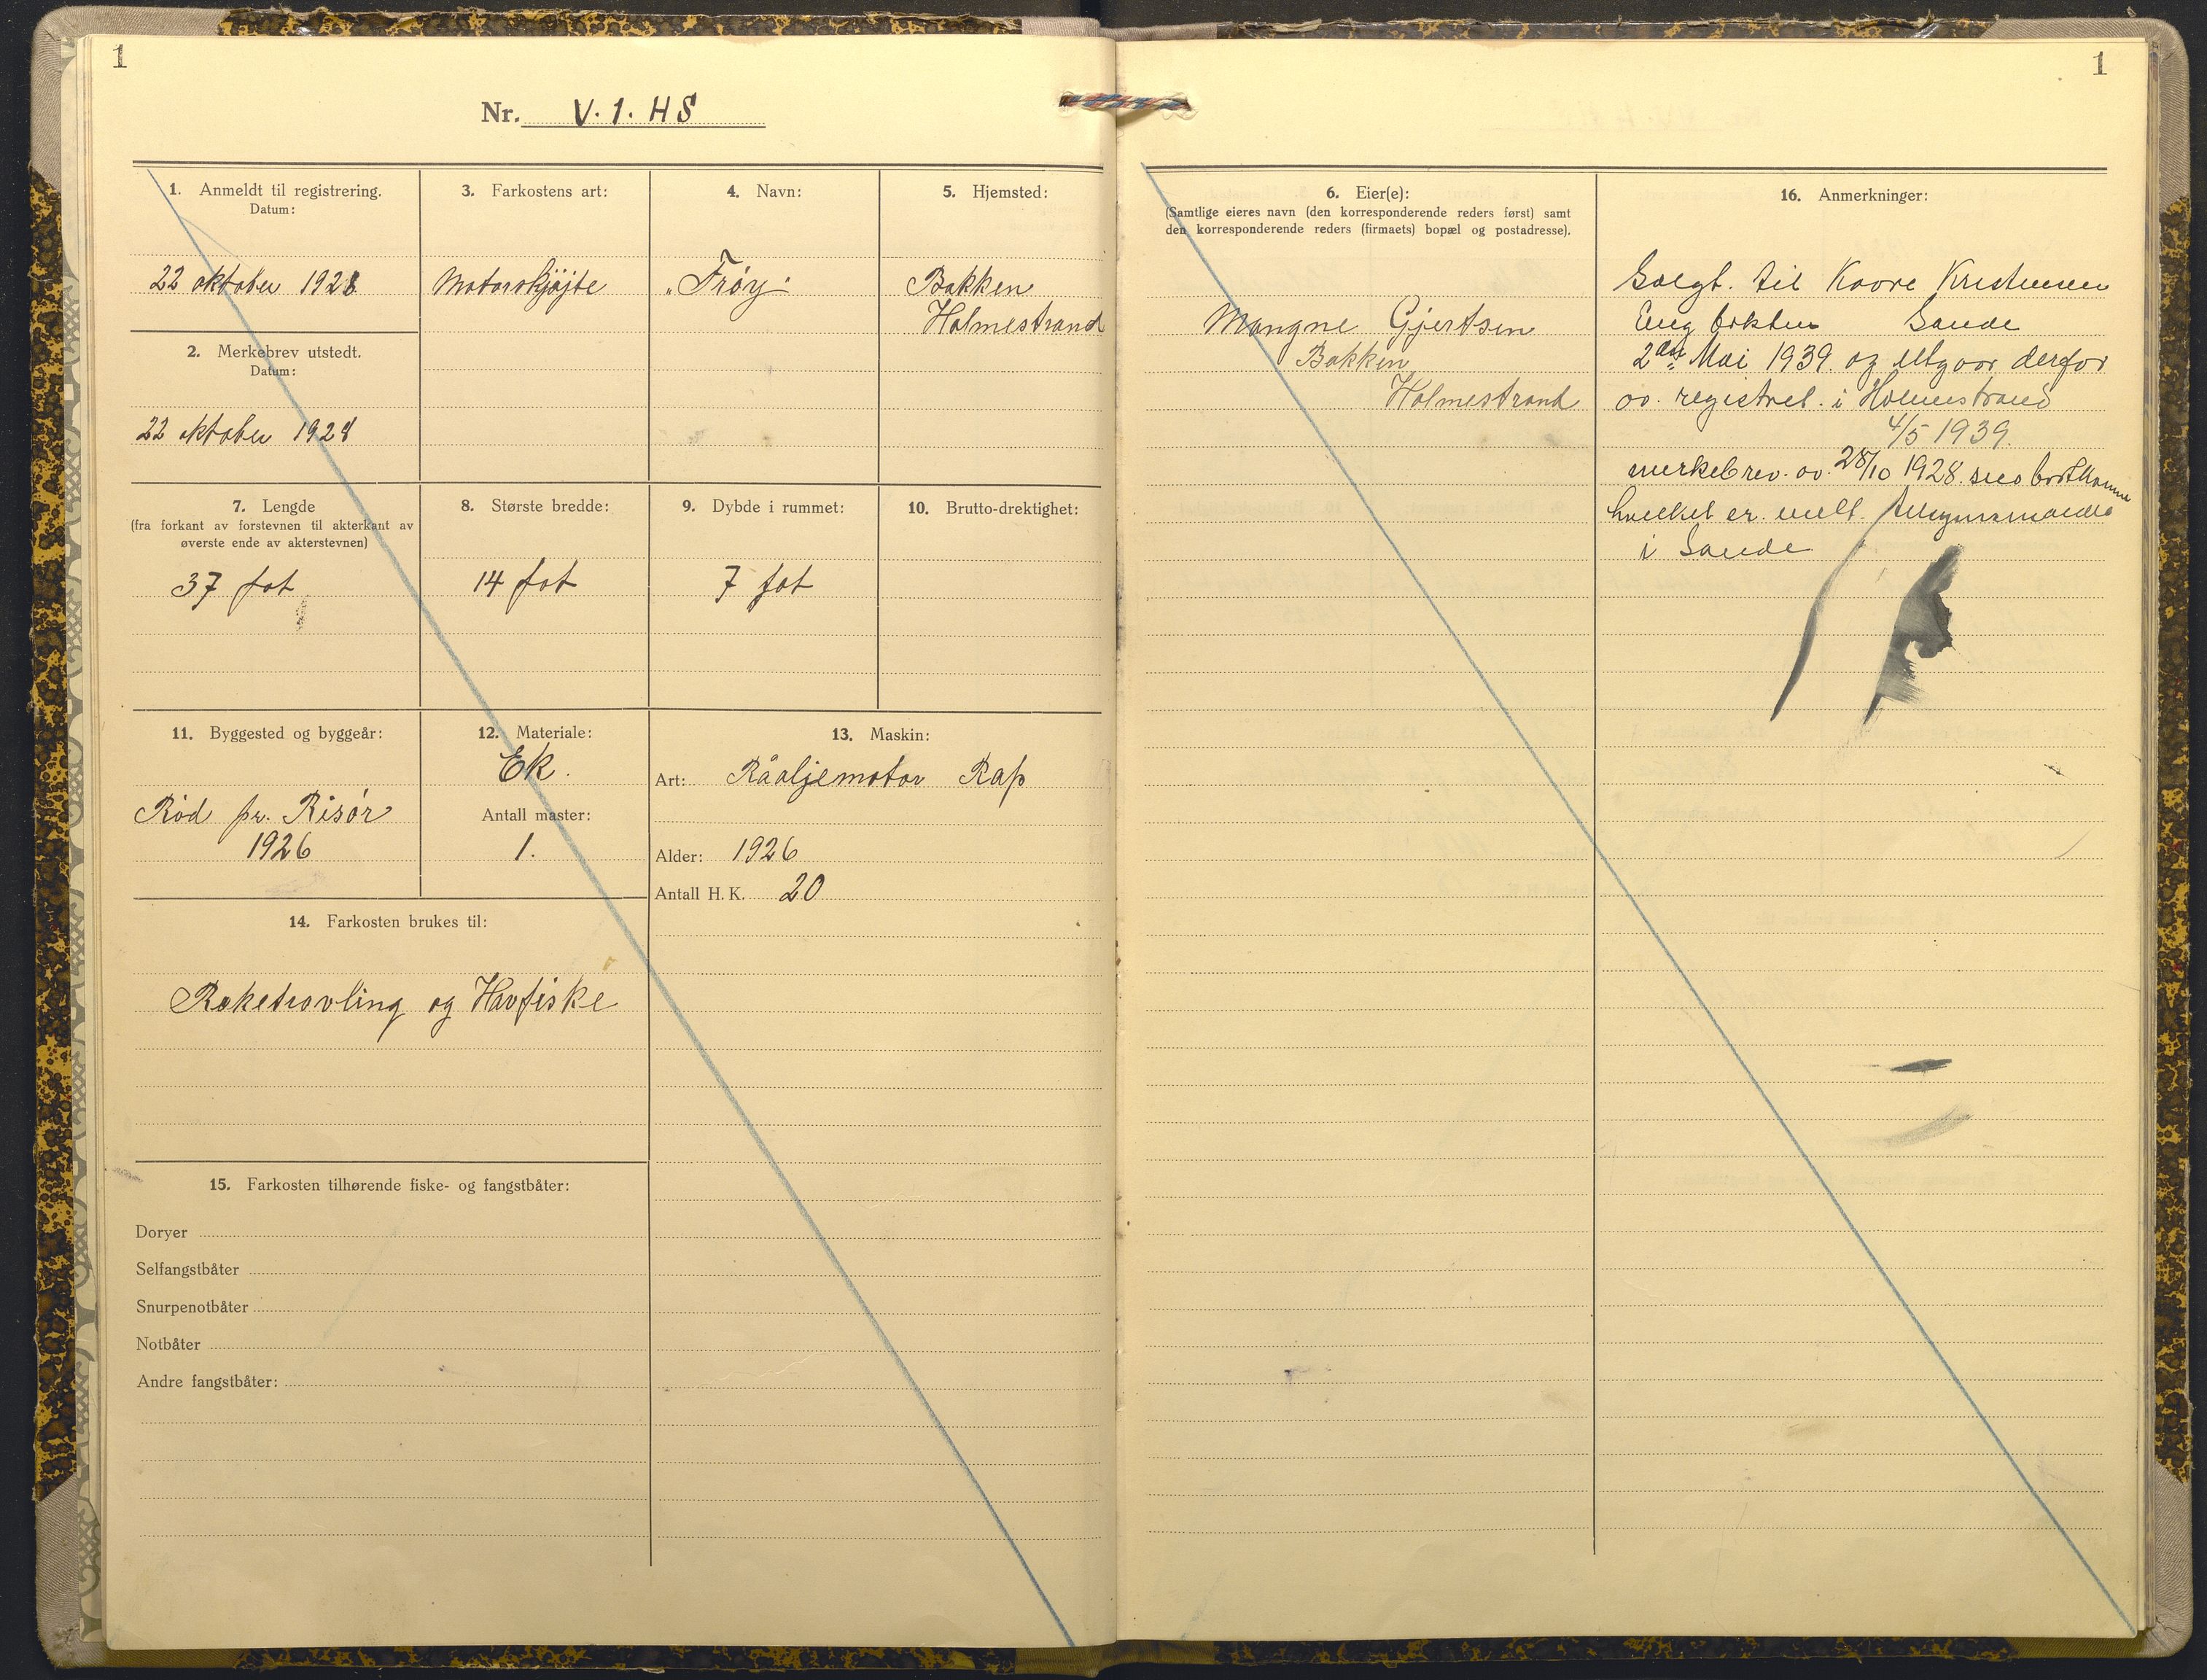 1
Nr. V. 1. HS
1. Anmeldt til registrering.
Datum:
22 oktober 1928
2. Merkebrev utstedt.
Datum:
22 oktober 1928
3. Farkostens art:
Motorskjøjte
4. Navn:
"Frøy"
5. Hjemsted:
Bakken
Holmestrand
7. Lengde
(fra forkant av forstevnen til akterkant av
øverste ende av akterstevnen)
37 fot
8. Største bredde:
14 fot
9. Dybde i rummet:
7 fot
10. Brutto-drektighet:
11. Byggested og byggeår:
Röd pr. Risör
1926
12. Materiale:
Ek.
Antall master:
1.
13. Maskin:
Art: Råoljemotor Rap
Alder: 1926
Antall H. K. 20
14. Farkosten brukes til:
Reketrovling og Havfiske
15. Farkosten tilhørende fiske- og fangstbåter:
Doryer
Selfangstbåter
Snurpenotbåter
Notbåter
Andre fangstbåter:
1
6. Eier(e):
(Samtlige eieres navn (den korresponderende reders først) samt
den korresponderende reders (firmaets) bopæl og postadresse).
Mangne Gjertsen
Bakken
Holmestrand
16. Anmerkninger:
Solgt. til Kaare Kristensen
Sande
2den Mai 1939. og utgaar derfor
av. registret. i Holmestrand
4/5 1939.
merkebrev. av. 28/10 1928.
hvilket er. meldt. tilsynsmand
i Sande